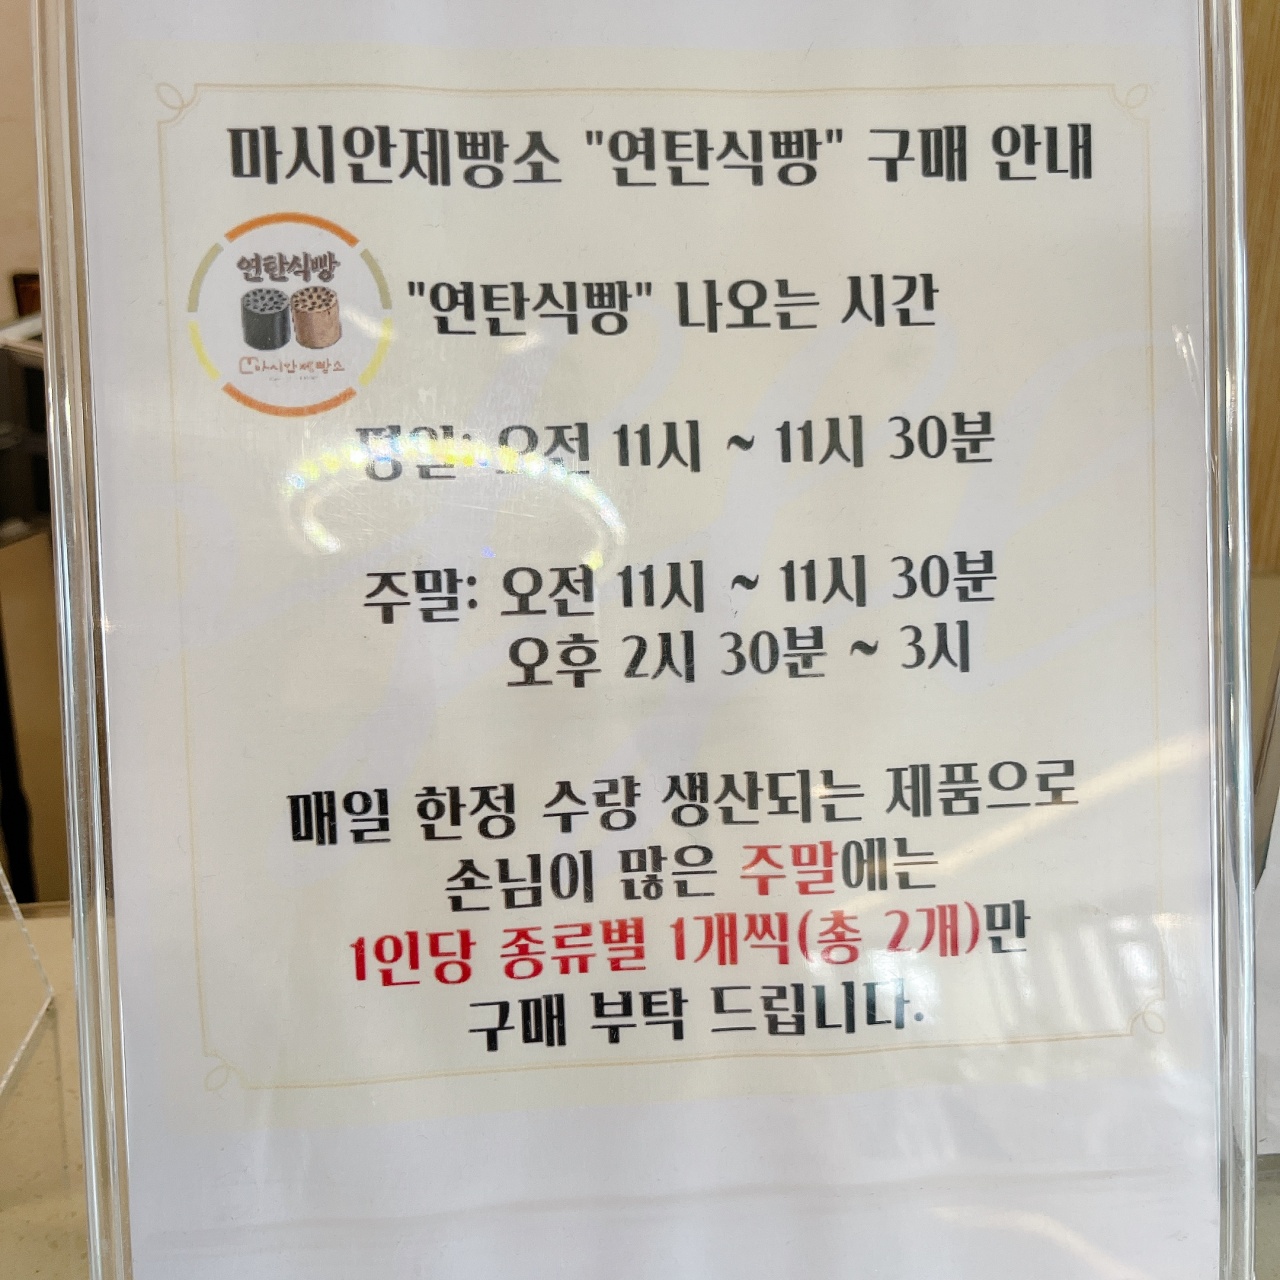 마시안제빵소 "연탄식빵" 구매 안내
연탄식빵
마시안제빵소
"연탄식빵" 나오는 시간
평일: 오전 11시 ~ 11시 30분
주말: 오전 11시 ~ 11시 30분
오후 2시 30분 ~ 3시
매일 한정 수량 생산되는 제품으로
손님이 많은 주말에는
1인당 종류별 1개씩(총 2개)만
구매 부탁 드립니다.